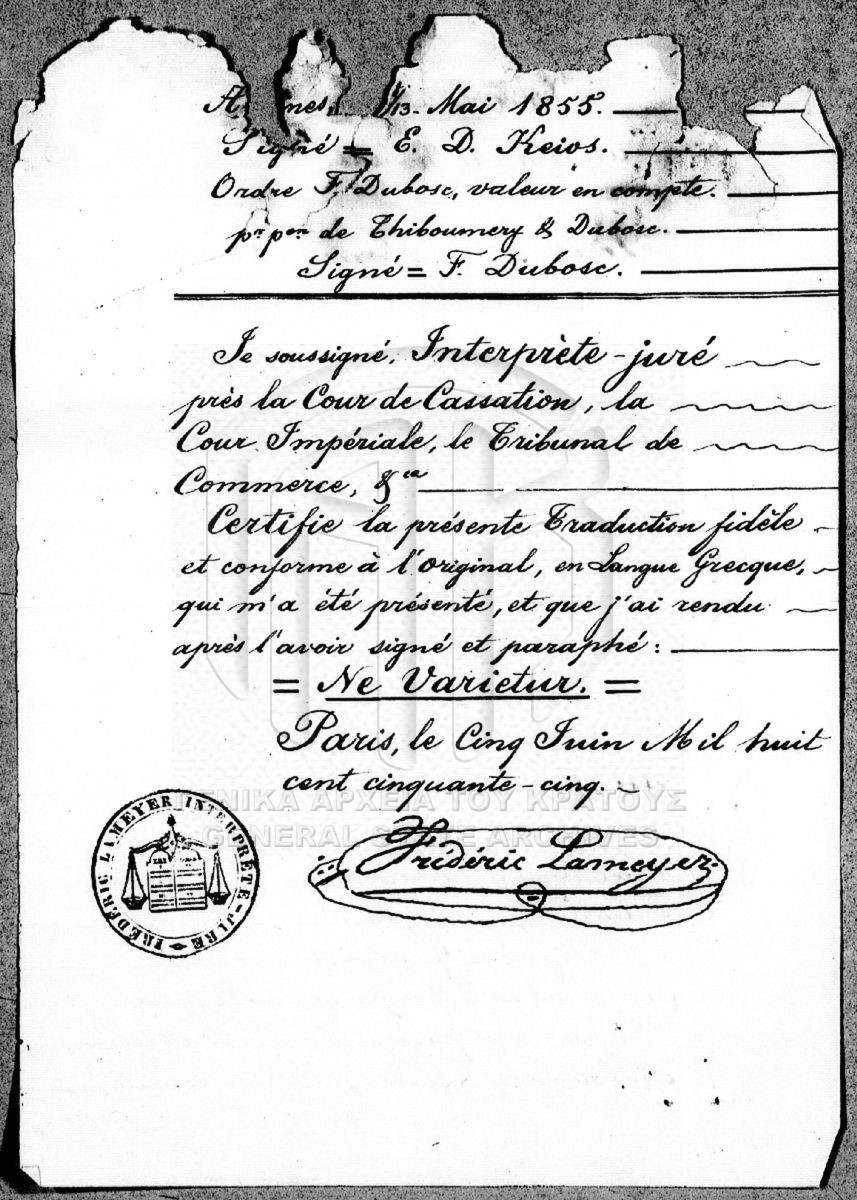 A nes, 1/13. Mai 1855.
Signé = E. D. Keios.
Ordre F. Dubosc, valeur en compte.
pr. pon de Thiboumery & Dubosc.
Signé = F. Dubosc.
Je soussigné, Interprète-juré
près la Cour de Cassation, la
Cour Impériale, le Tribunal de
Commerce, &ca
Certifie la présente Traduction fidèle
et conforme à l'original, en Langue Grecque,
qui m'a été présenté, et que j'ai rendu
après l'avoir signé et paraphé:
= Ne Varietur. =
Paris, le Cinq Juin Mil huit
cent cinquante-cinq.
ΓΕΝΙΚΑ ΑΡΧΕΙΑ ΤΟΥ ΚΡΑΤΟΥΣ
GENERAL STATE ARCHIVES
Frédéric Lameyer
FRÉDÉRIC LAMEYER INTERPRÈTE-JURÉ